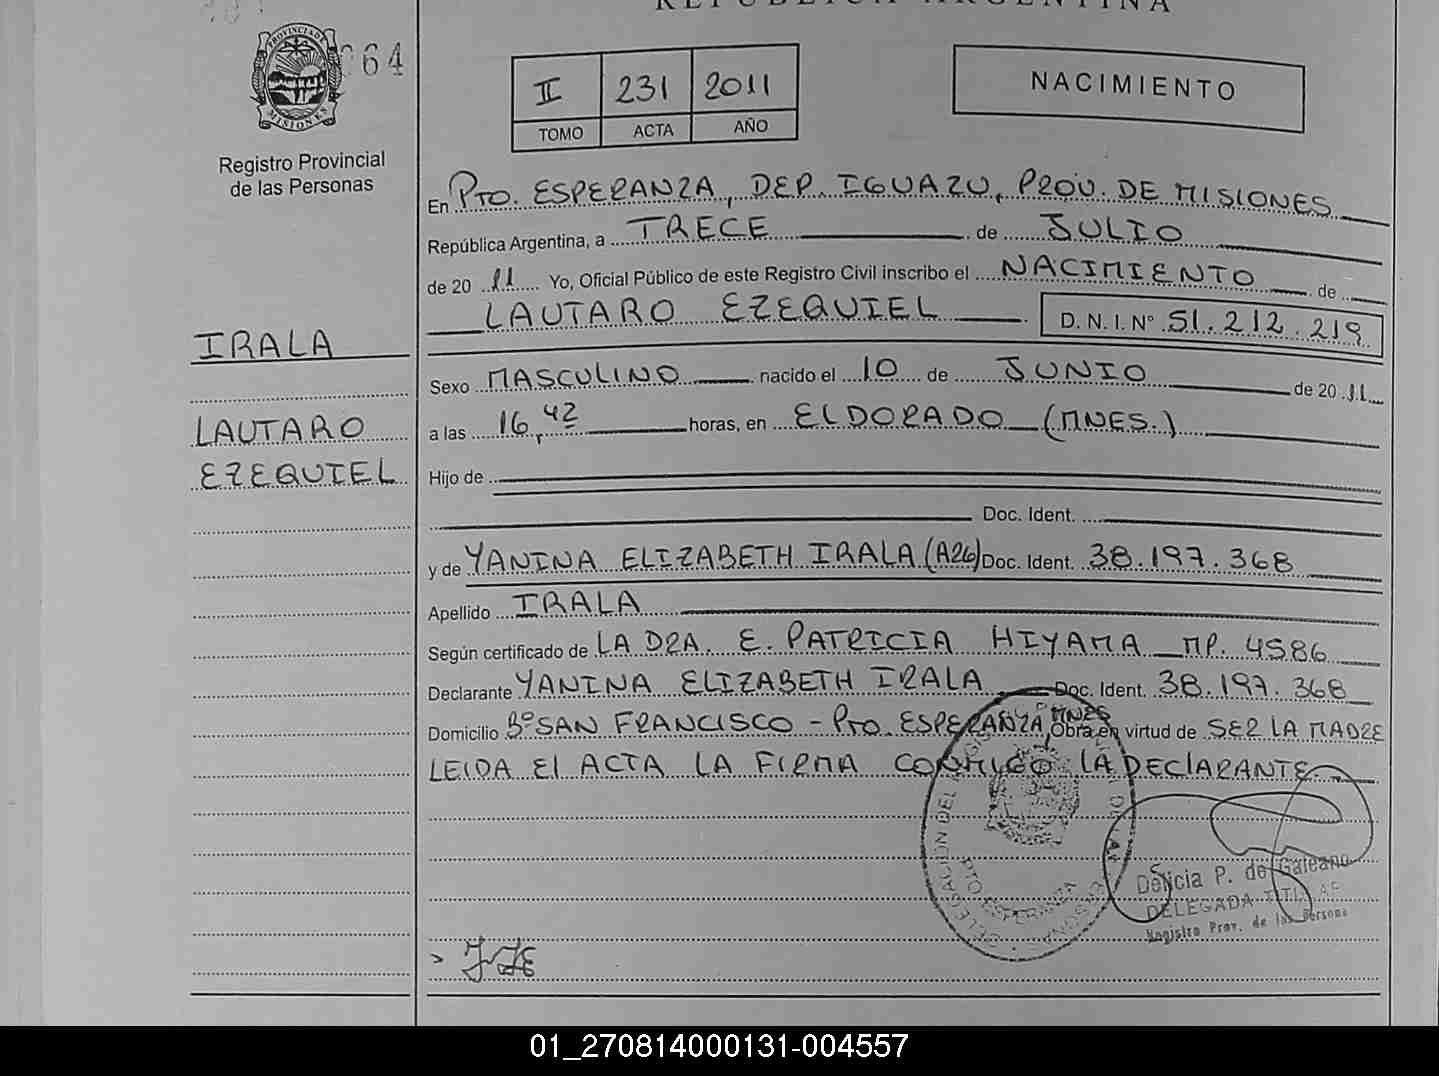 REPUBLICA ARGENTINA
PROVINCIA DE
MISIONES
064
Registro Provincial
de las Personas
II 231 2011
TOMO ACTA AÑO
NACIMIENTO
En PTO. ESPERANZA, DEP. IGUAZU, PROV. DE MISIONES
República Argentina, a TRECE de JULIO
de 20 11 Yo, Oficial Público de este Registro Civil inscribo el NACIMIENTO de
LAUTARO EZEQUIEL D.N.I. N° 51.212.219
IRALA
LAUTARO
EZEQUIEL
Sexo MASCULINO nacido el 10 de JUNIO de 20 11
a las 16,42 horas, en ELDORADO (MNES.)
Hijo de
Doc. Ident.
y de YANINA ELIZABETH IRALA (A26) Doc. Ident. 38.197.368
Apellido IRALA
Según certificado de LA DRA. E. PATRICIA HIYAMA MP. 4586
Declarante YANINA ELIZABETH IRALA Doc. Ident. 38.197.368
Domicilio B° SAN FRANCISCO - PTO. ESPERANZA, MNES Obra en virtud de SER LA MADRE
LEIDA El ACTA LA FIRMA CONMIGO LA DECLARANTE.
DELEGACIÓN DEL
PTO. ESPERANZA
Delicia P. de Galeano
DELEGADA TITULAR
Registro Prov. de las Persona
01_270814000131-004557